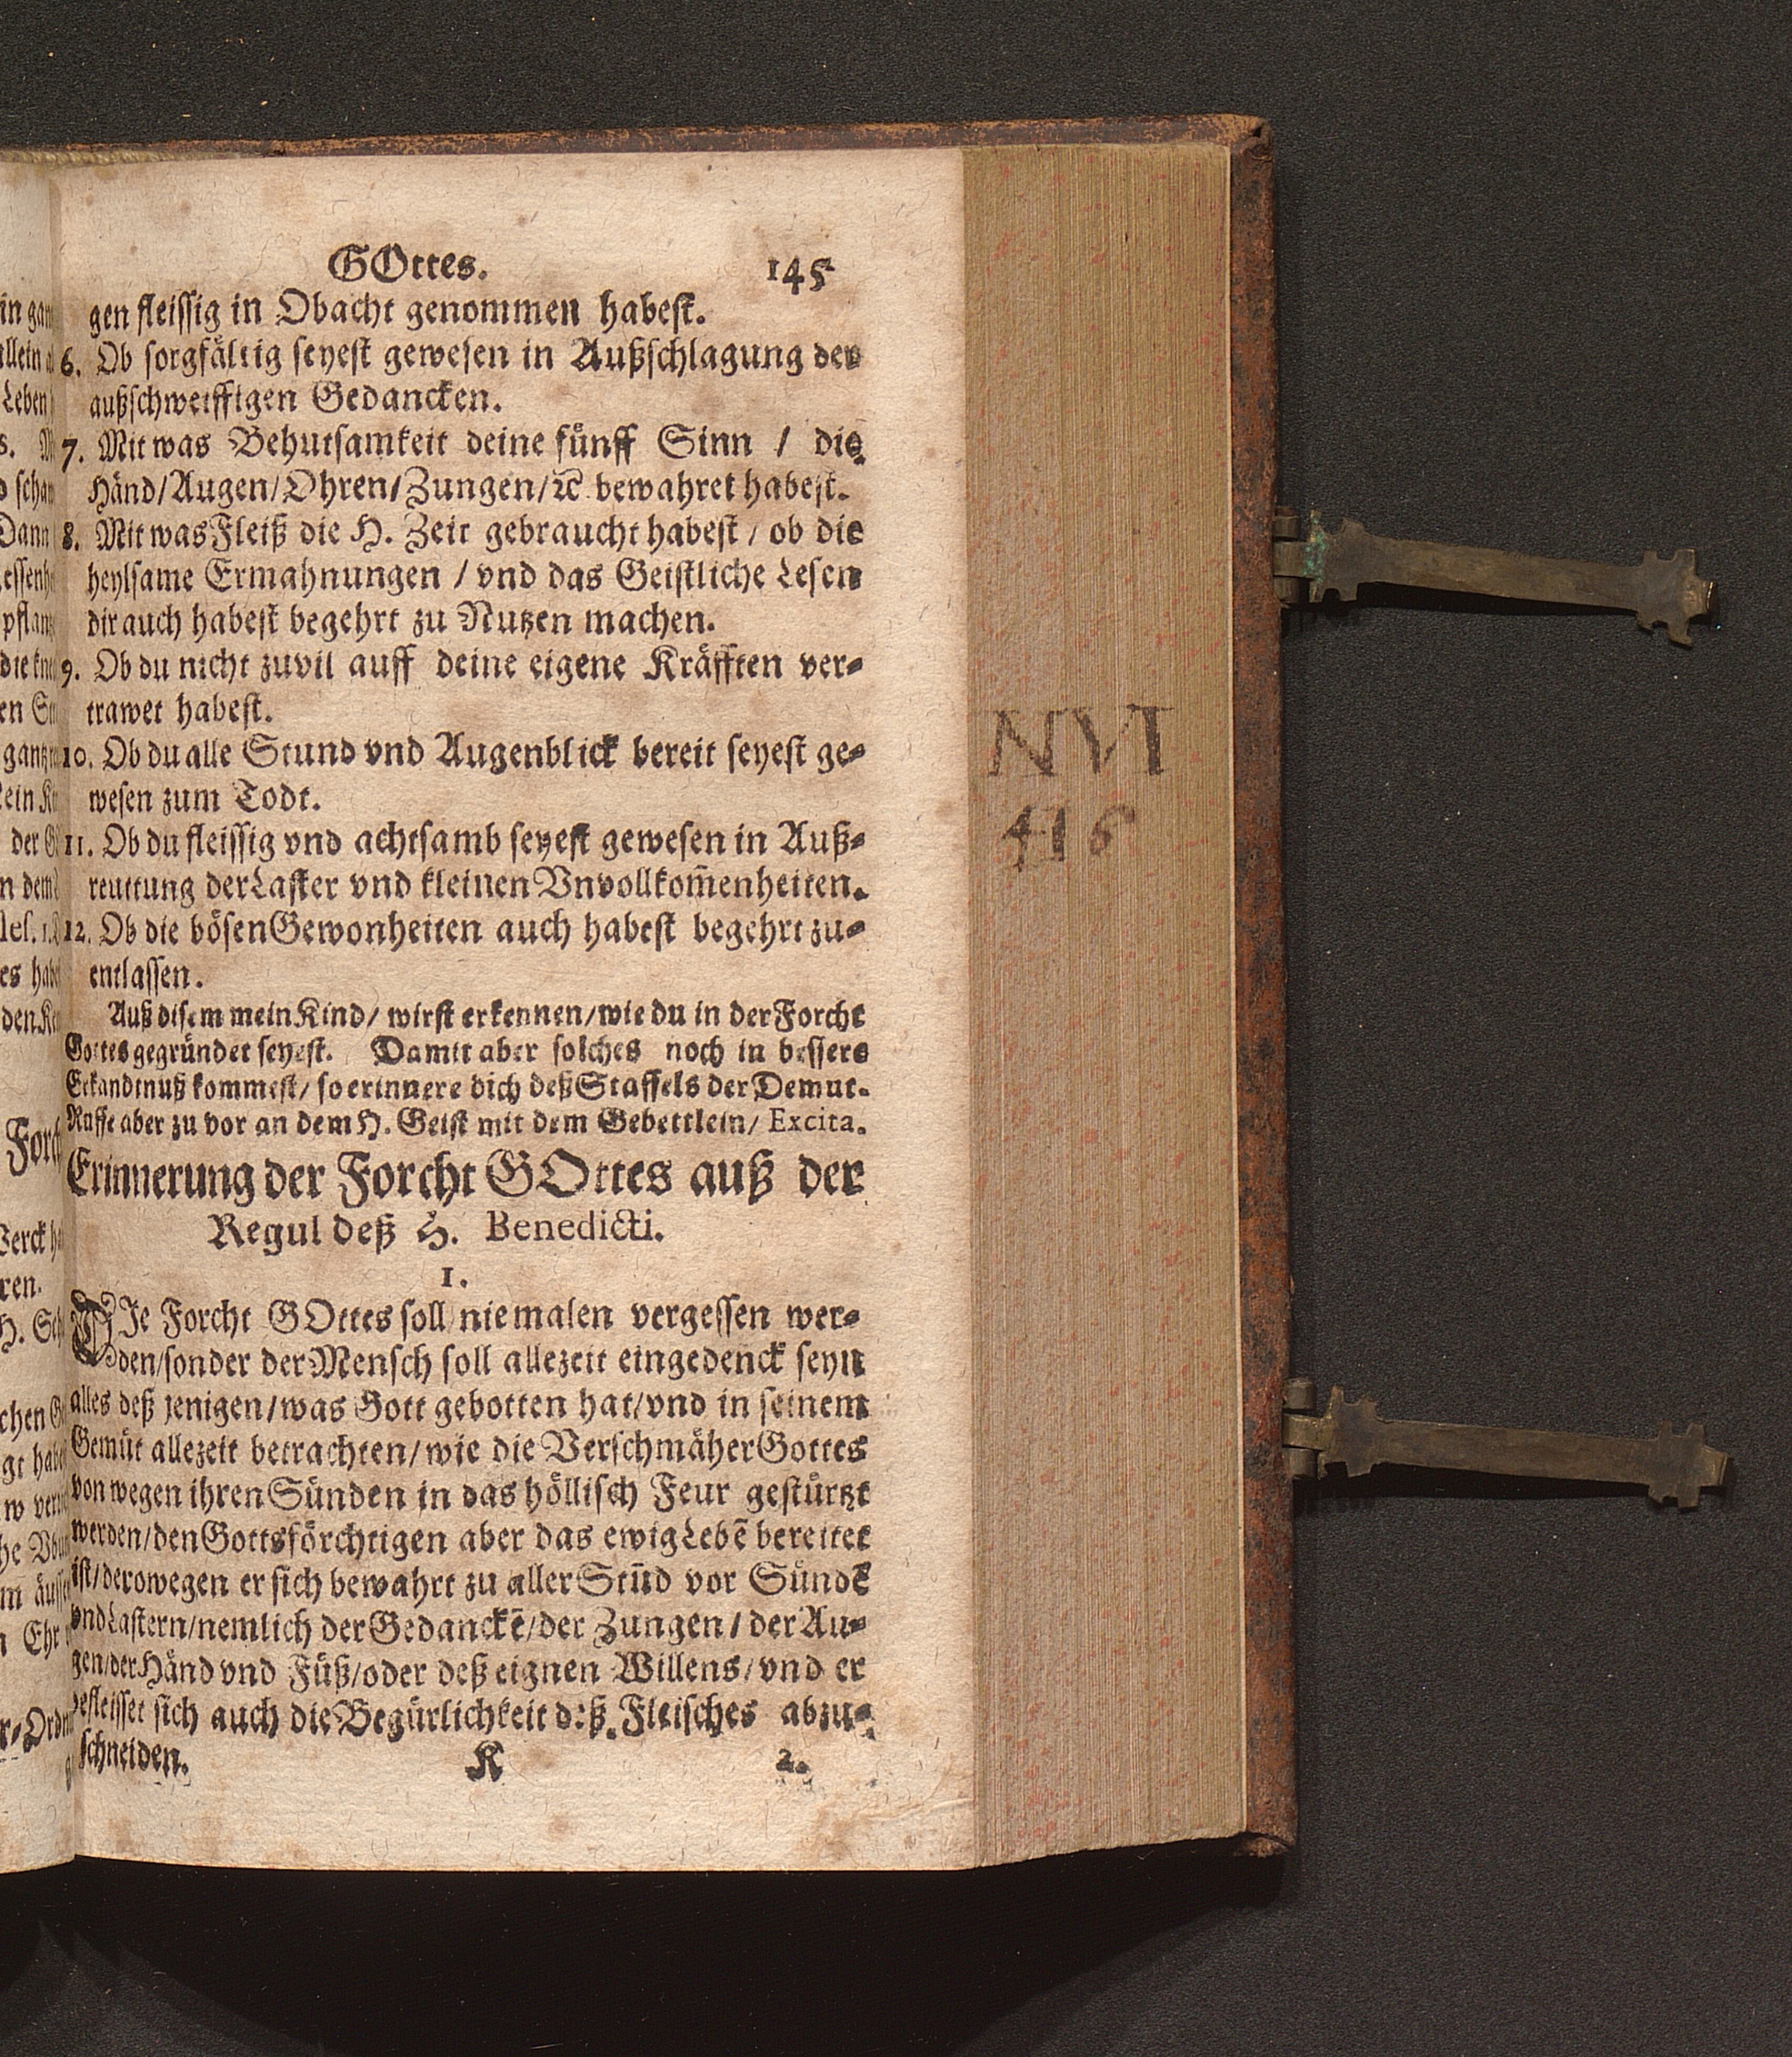 GOttes. 145
gen fleissig in Obacht genommen habest.
6. Ob sorgfältig seyest gewesen in Außschlagung der
außschweiffigen Gedancken.
7. Mit was Behutsamkeit deine fünff Sinn / die
Händ/Augen/Ohren/Zungen/ꝛc bewahret habest.
8. Mit was Fleiß die H. Zeit gebraucht habest / ob die
heylsame Ermahnungen / vnd das Geistliche Lesen
dir auch habest begehrt zu Nutzen machen.
9. Ob du nicht zuvil auff deine eigene Kräfften ver-
trawet habest.
10. Ob du alle Stund vnd Augenblick bereit seyest ge-
wesen zum Todt.
11. Ob du fleissig vnd achtsamb seyest gewesen in Auß-
reuttung der Laster vnd kleinen Vnvollkom̃enheiten.
12. Ob die bösen Gewonheiten auch habest begehrt zu-
entlassen.
Auß disem mein Kind/ wirst erkennen/wie du in der Forcht
Gottes gegründet seyest. Damit aber solches noch in bessere
Erkandtnuß kommest/ so erinnere dich deß Staffels der Demut.
Ruffe aber zu vor an dem H. Geist mit dem Gebettlein/ Excita.
Erinnerung der Forcht GOttes auß der
Regul deß H. Benedicti.
1.
DIe Forcht GOttes soll niemalen vergessen wer-
den/sonder der Mensch soll allezeit eingedenck seyn
alles deß jenigen/was Gott gebotten hat/vnd in seinem
Gemüt allezeit betrachten/wie die Verschmäher Gottes
von wegen ihren Sünden in das höllisch Feur gestürtzt
werden/den Gottsförchtigen aber das ewig Lebẽ bereitet
ist/derowegen er sich bewahrt zu aller Stũd vor Sündẽ
vnd Lastern/nemlich der Gedanckẽ/der Zungen / der Au-
gen/der Händ vnd Füß/oder deß eignen Willens/vnd er
befleisset sich auch die Begürlichkeit deß Fleisches abzu-
schneiden.
K 2.
NVI
416